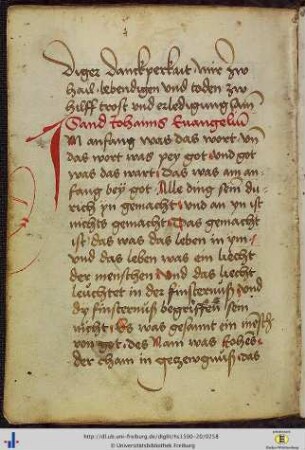 diger danckperkait · mir zw
hail · lebendigen und toden zw
hilff trost und erledigung · Amen
Sand Johanns Evangelium
In anfang was das wort · un
das wort was pey got · und got
was das wart · Das was am an
fang bey got · Alle ding sein du
rich yn gemacht · und an yn ist
nichts gemacht · Das gemacht
ist · das was das leben in ym ·
und das leben was ein liecht
der menschen · und das liecht
leuchtet in der finsternuß · und
dy finsternuß begriffen sein
nicht · Es was gesannt ein mensch
von got · des Nam was Johes ·
der cham in gezewgnuß · das
http://dl.ub.uni-freiburg.de/diglit/hs1500-20/0258
© Universitätsbibliothek Freiburg